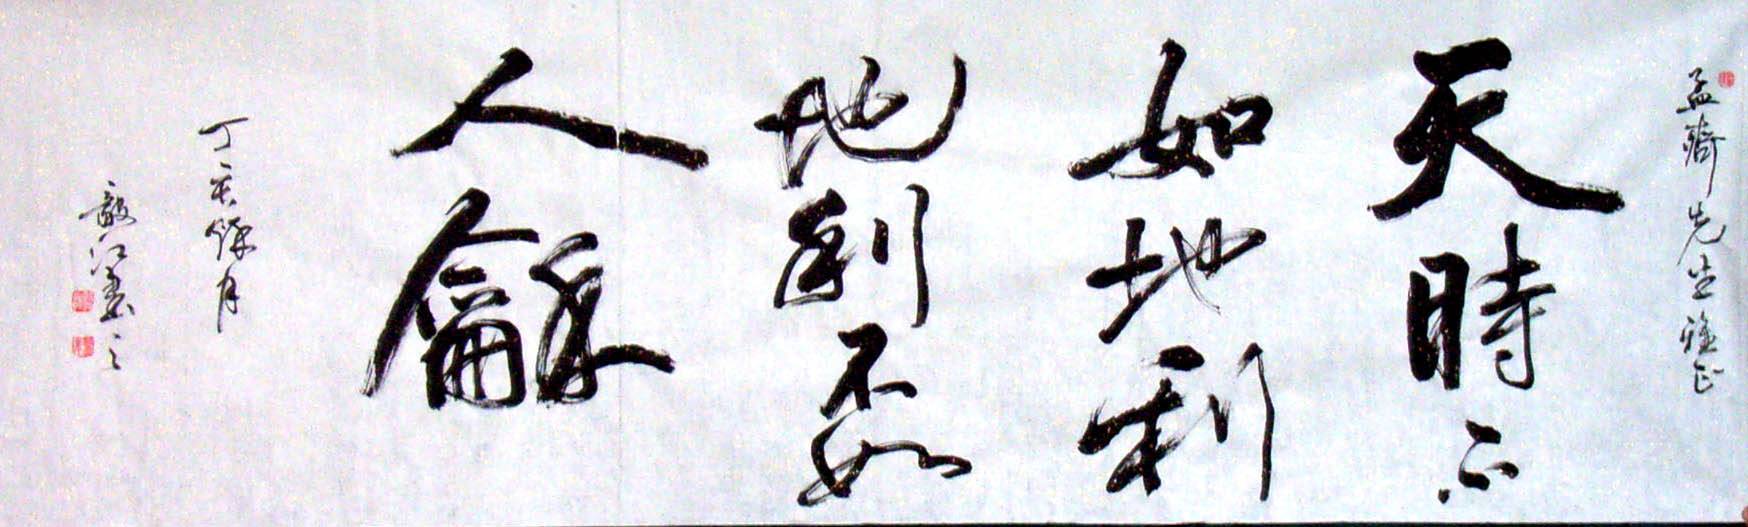 孟齊先生雅正
天時不
如地利
地利不如
人龢
丁亥餘月
敬江書之